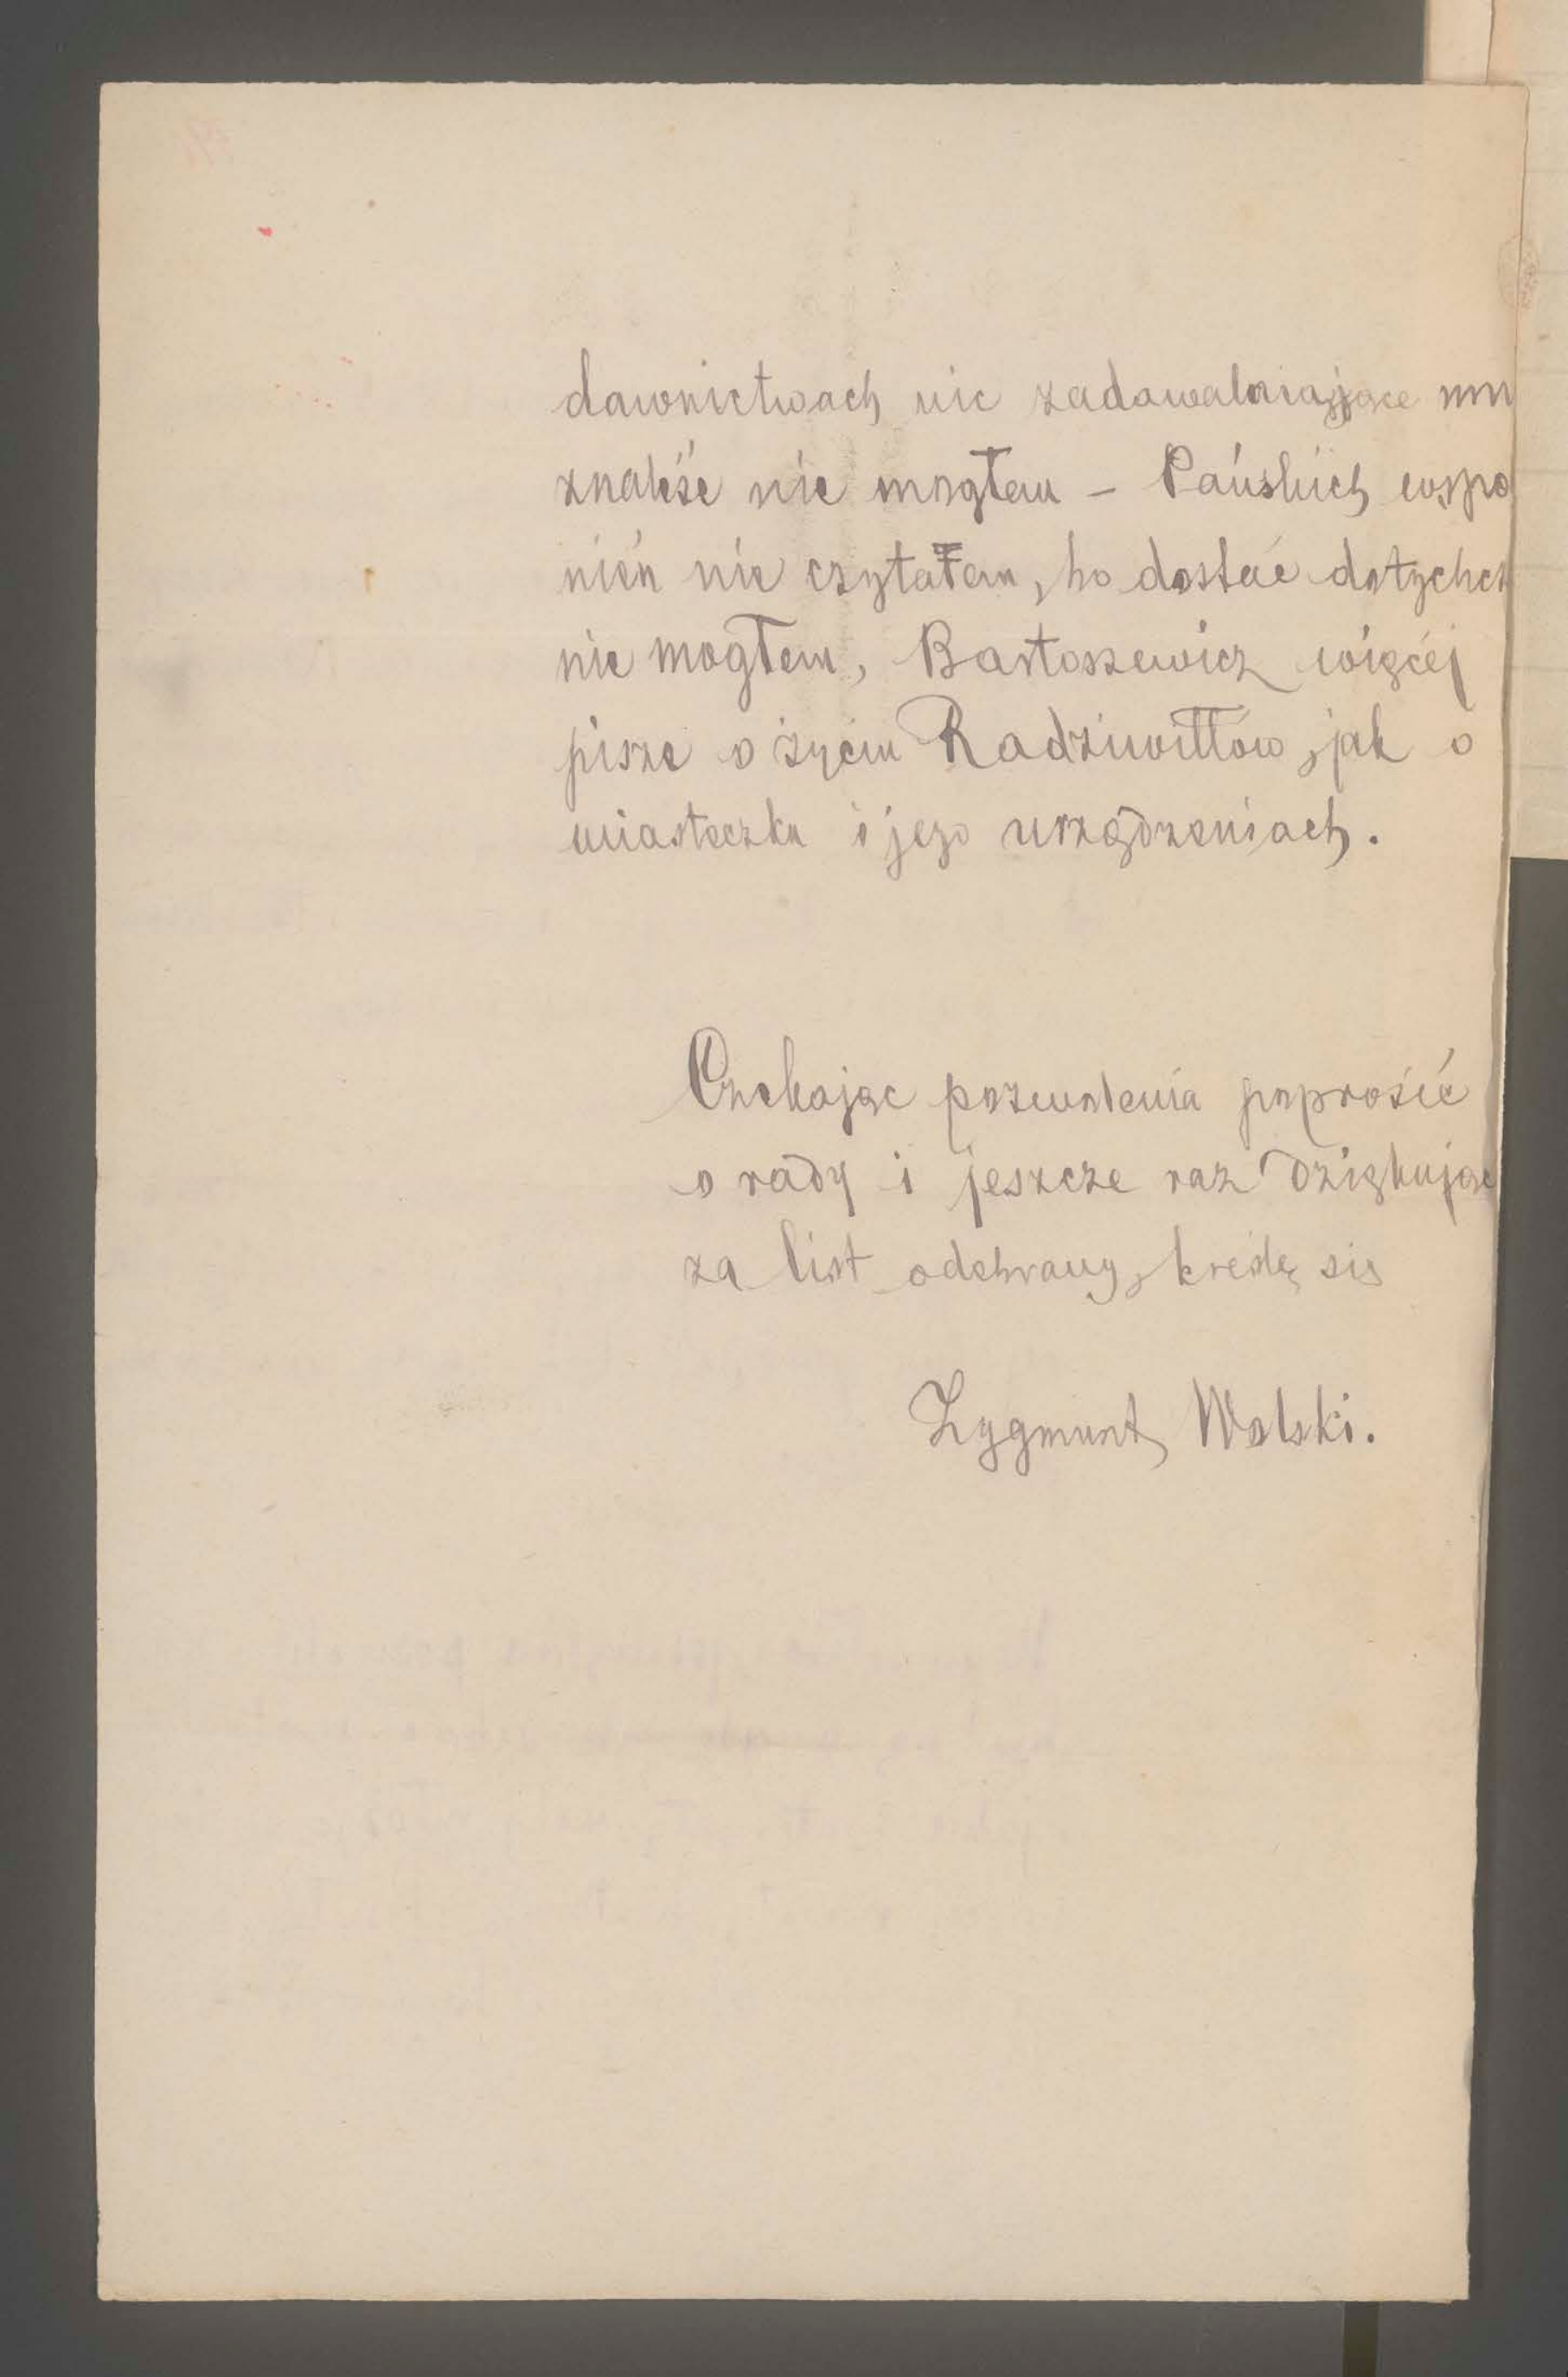 dawnictwach nic zadawalniające
znaleźć nie mogłem – Pańskich wspo
nień nie czytałem, bo dostać dotychcz
nie mogłem, Bartoszewicz więcéj
pisze o życiu Radziwiłłów, jak o
miasteczku i jego urządzeniach.
Czekając pozwolenia poprosić
o rady i jeszcze raz dziękując
za list odebrany, kreślę się
Zygmunt Wolski.